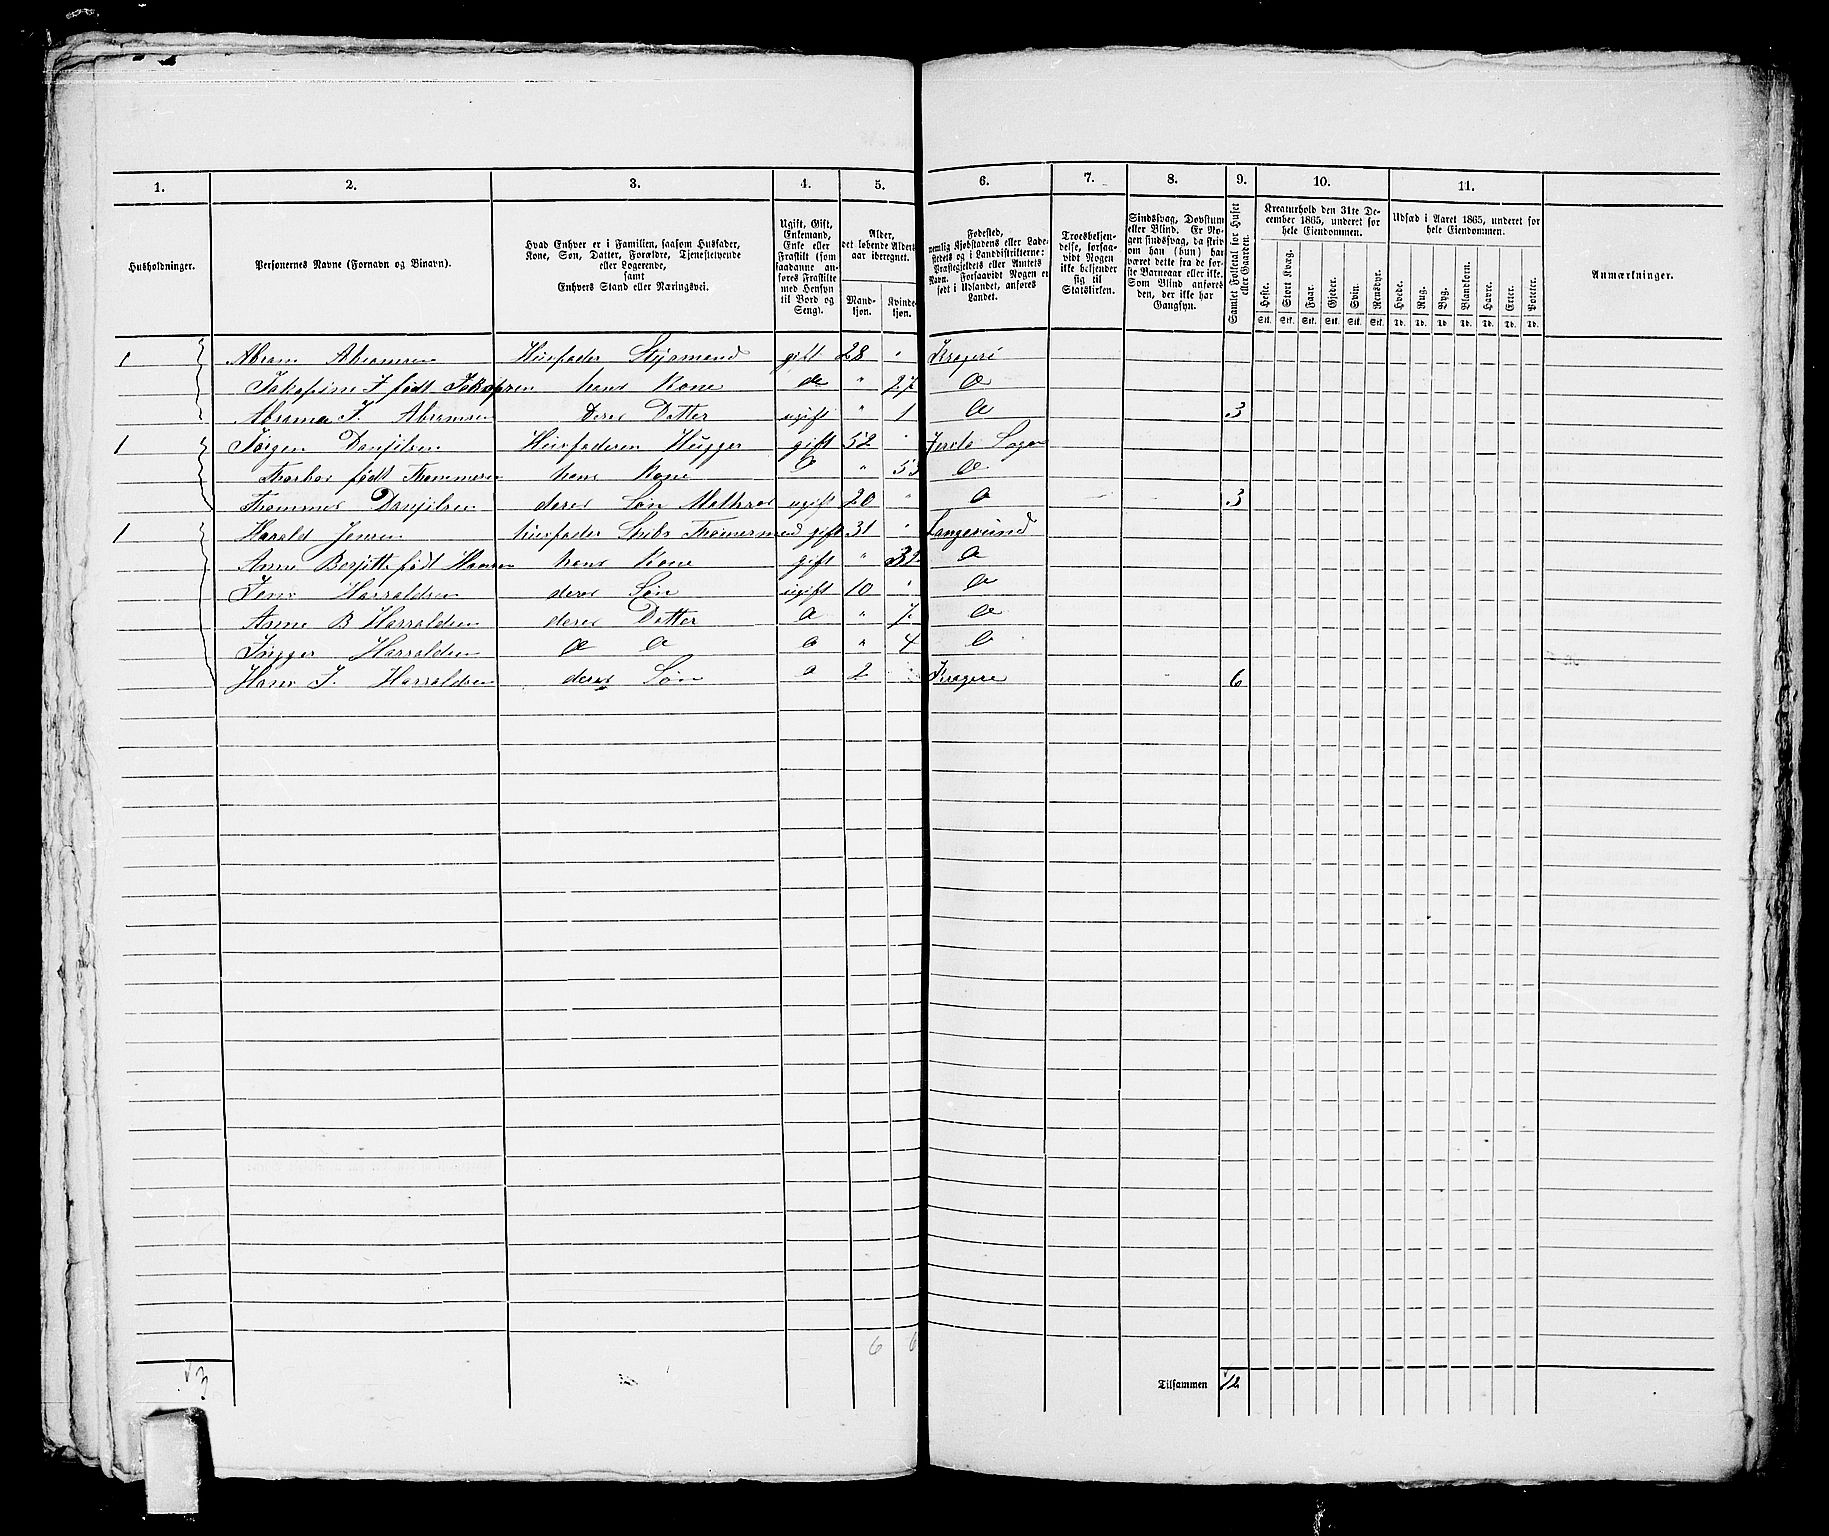 1. 2. 3. 4. 5. 6. 7. 8. 9. 10. 11.
Husholdninger.
Personernes Navne (Fornavn og Binavn).
Hvad Enhver er i Familien, saasom Husfader, Kone, Søn, Datter, Forældre, Tjenestetyende eller Logerende, samt Enhvers Stand eller Næringsvei.
Ugift, Gift, Enkemand, Enke eller Fraskilt (som saadanne anføres Fraskilte med Hensyn til Bord og Seng).
Alder, det løbende Aldersaar iberegnet.
Mandkjøn.
Kvindekjøn.
Fødested, nemlig Kjøbstadens eller Ladestedets og i Landdistrikterne: Præstegjeldets eller Amtets Navn. Forsaavidt Nogen er født i Udlandet, anføres Landet.
Troesbekjendelse, forsaavidt Nogen ikke bekjender sig til Statskirken.
Sindssvag, Døvstum eller Blind. Er Nogen sindssvag, da skrives om han (hun) har været dette fra de første Barneaar eller ikke. Som Blind anføres den, der ikke har Gangsyn.
Samlet Folketal for Huset eller Gaarden.
Kreaturhold den 31te December 1865, underet for hele Eiendommen.
Heste. Stort Kvæg. Faar. Gjeder. Svin. Rensdyr.
Stk. Stk. Stk. Stk. Stk. Stk.
Udsæd i Aaret 1865, underet for hele Eiendommen.
Hvede. Rug. Byg. Blandkorn. Havre. Erter. Poteter.
Td. Td. Td. Td. Td. Td. Td.
Anmærkninger.
1 Abram Abramsen Husfader Styrmand gift 28 " Kragerø
Jakopine J født Jakopsen hans Kone do " 27
Abrama J. Abramsen Deres Datter ugift " 1 3
1 Jørgen Danjilsen Husfaderen Hugger gift 52 "
født Thommesen hans Kone " 53
Thommes Danjilsen deres Søn Mathros ugift 20 " 3
1 Harald Jensen husfader Skibs Tømermend gift 31 " Langesund
Anne Berjitte født Hansen hans Kone gift " 32
Jens Harraldsen deres Søn ugift 10 "
Anne B Harraldsen deres Datter " 7
Ingger Harraldsen " 4
Hans J. Harraldsen deres Søn 2 Kragerø 6
3 6 6
Tilsammen 12